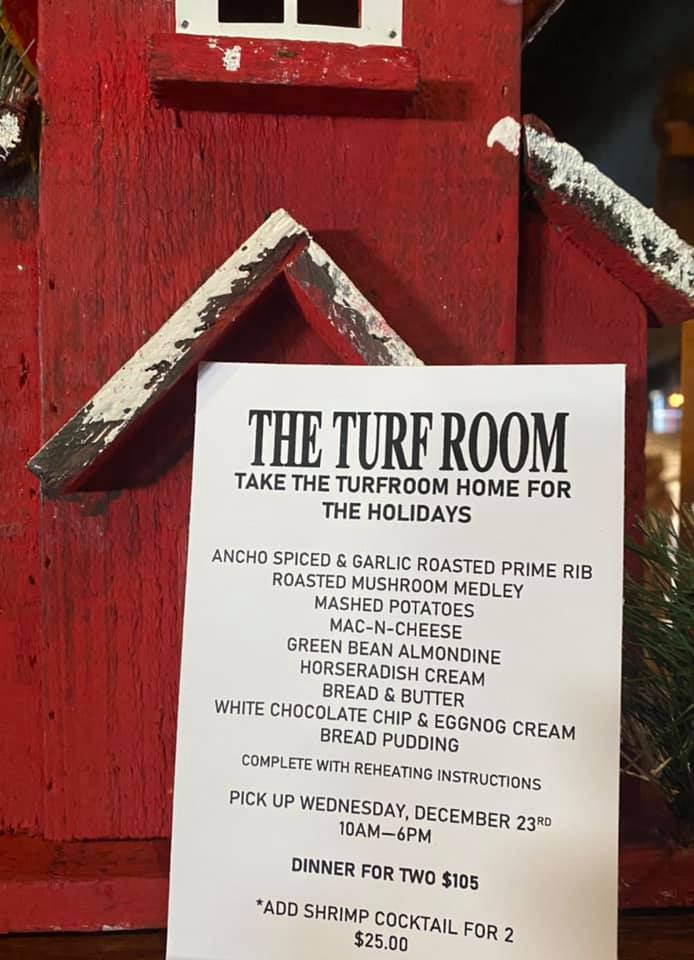 THE TURF ROOM
TAKE THE TURFROOM HOME FOR
THE HOLIDAYS
ANCHO SPICED & GARLIC ROASTED PRIME RIB
ROASTED MUSHROOM MEDLEY
MASHED POTATOES
MAC-N-CHEESE
GREEN BEAN ALMONDINE
HORSERADISH CREAM
BREAD & BUTTER
WHITE CHOCOLATE CHIP & EGGNOG CREAM
BREAD PUDDING
COMPLETE WITH REHEATING INSTRUCTIONS
PICK UP WEDNESDAY, DECEMBER 23RD
10AM—6PM
DINNER FOR TWO $105
*ADD SHRIMP COCKTAIL FOR 2
$25.00